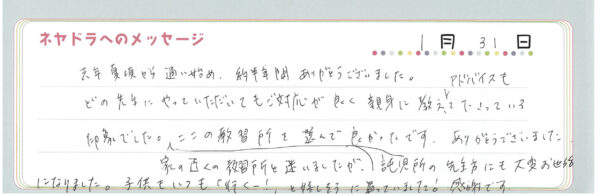 ネヤドラへのメッセージ
1月31日
去年夏頃から通い始め、約半年間ありがとうございました。
アドバイスも
どの先生にやっていただいてもご対応が良く親身に教えて下さっている
印象でした。ここの教習所を選んで良かったです。ありがとうございました。
家の近くの教習所と迷いましたが、託児所の先生方にも大変お世話
になりました。子供もいつも「行くー!」と嬉しそうに言っていました!感謝です